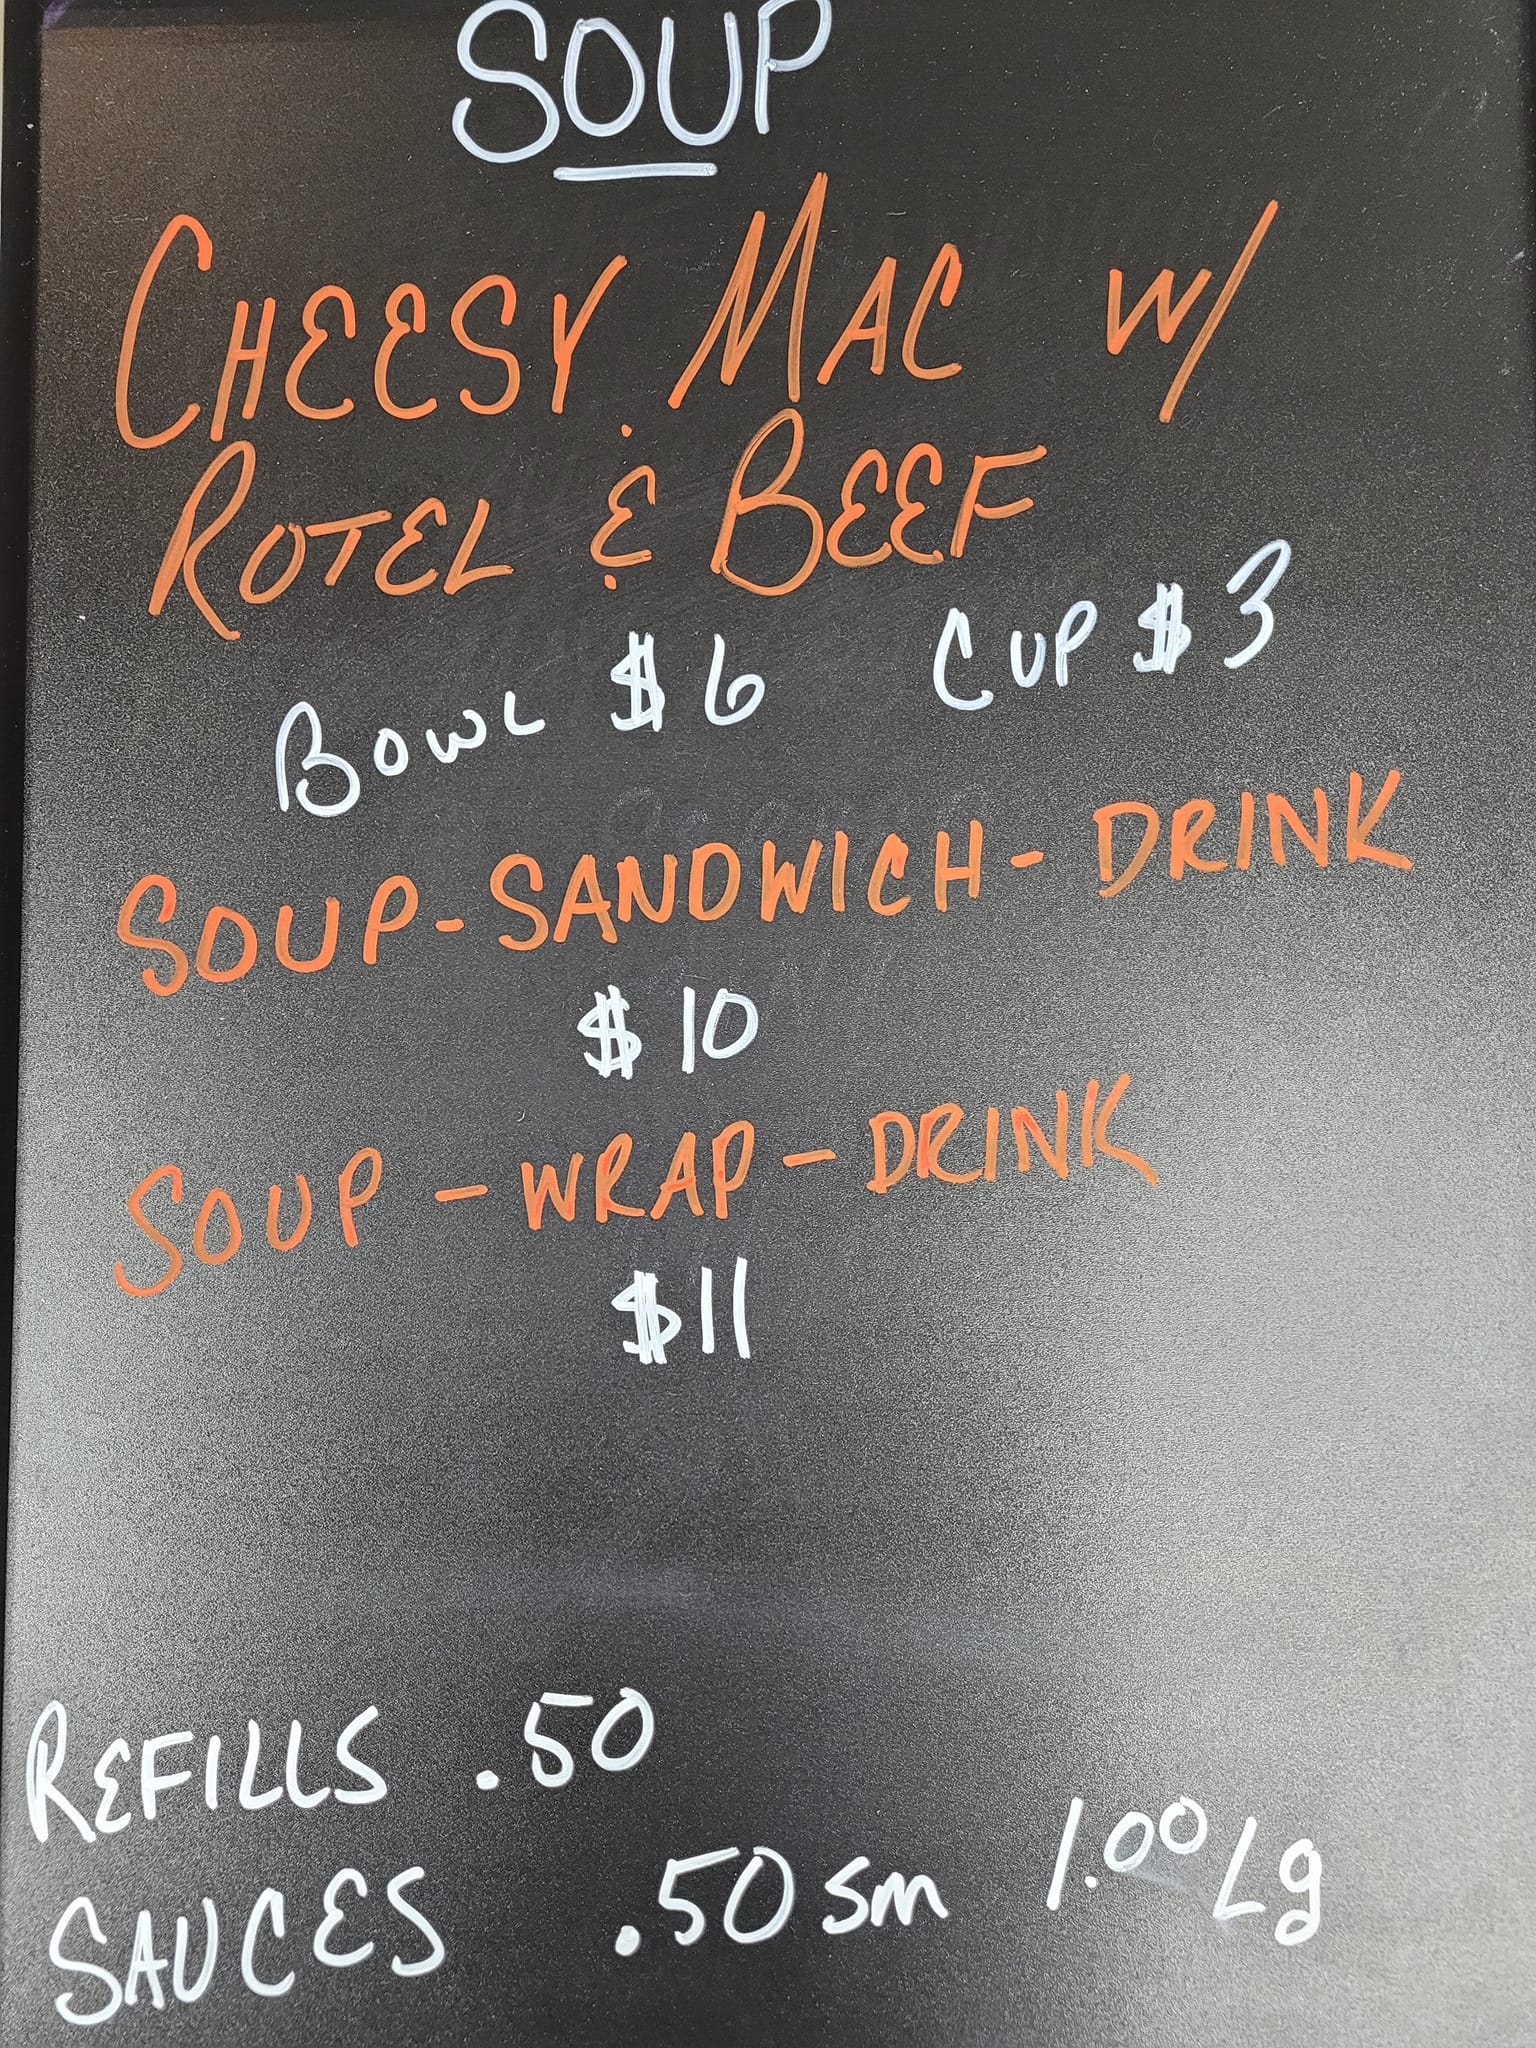 SOUP
CHEESY MAC W/
ROTEL & BEEF
BOWL $6 CUP $3
SOUP-SANDWICH-DRINK
$10
SOUP-WRAP-DRINK
$11
REFILLS .50
SAUCES .50 sm 1.00 Lg